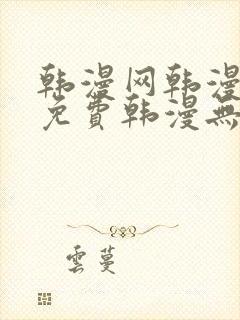 韩漫网韩漫
免費韩漫無
雲蔓